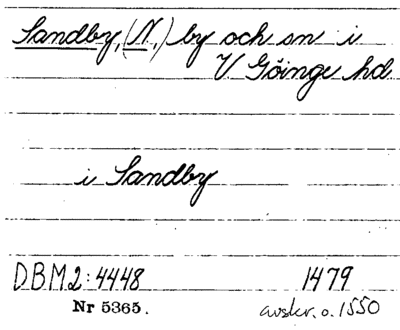 Sandby, (N.) by och sn i
V Göinge hd
i Sandby
D.B.M.2:4448 1479
Nr 5365. avskr. o. 1550